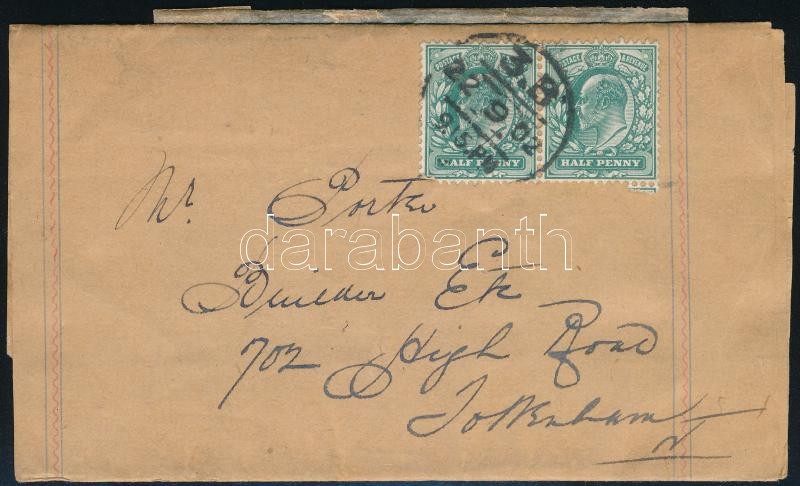 POSTAGE & REVENUE POSTAGE & REVENUE
HALF PENNY HALF PENNY
3.8
Mr Porter
darabanth
Builder Etc
702 High Road
Tottenham
N